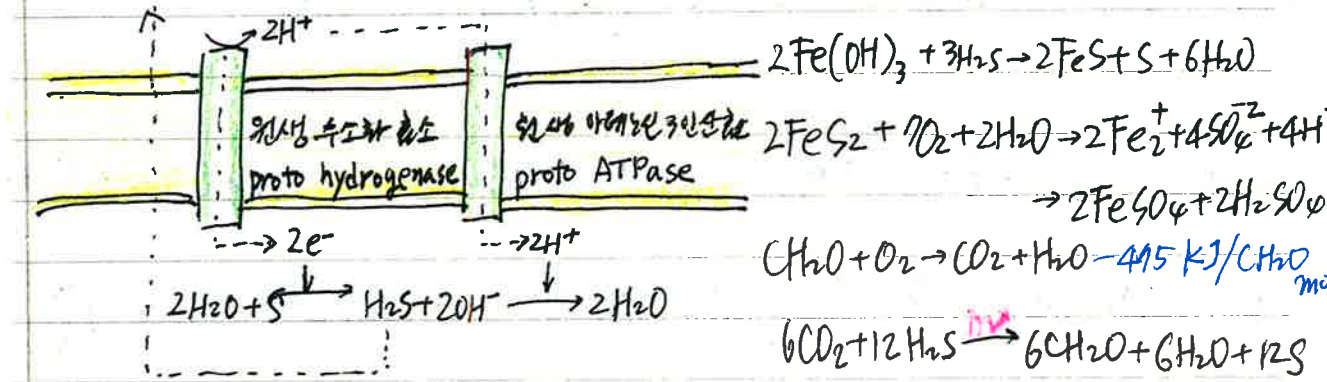 2H⁺
원생 수소화 효소
proto hydrogenase
원생 아데노신 3인산 효소
proto ATPase
2e⁻
2H⁺
2H₂O+S → H₂S+2OH⁻ → 2H₂O
2Fe(OH)₃+3H₂S→2FeS+S+6H₂O
2FeS₂+7O₂+2H₂O→2Fe₂⁺+4SO₄⁻²+4H⁺
→2FeSO₄+2H₂SO₄
CH₂O+O₂→CO₂+H₂O-495 KJ/CH₂O
6CO₂+12H₂S hν→6CH₂O+6H₂O+12S